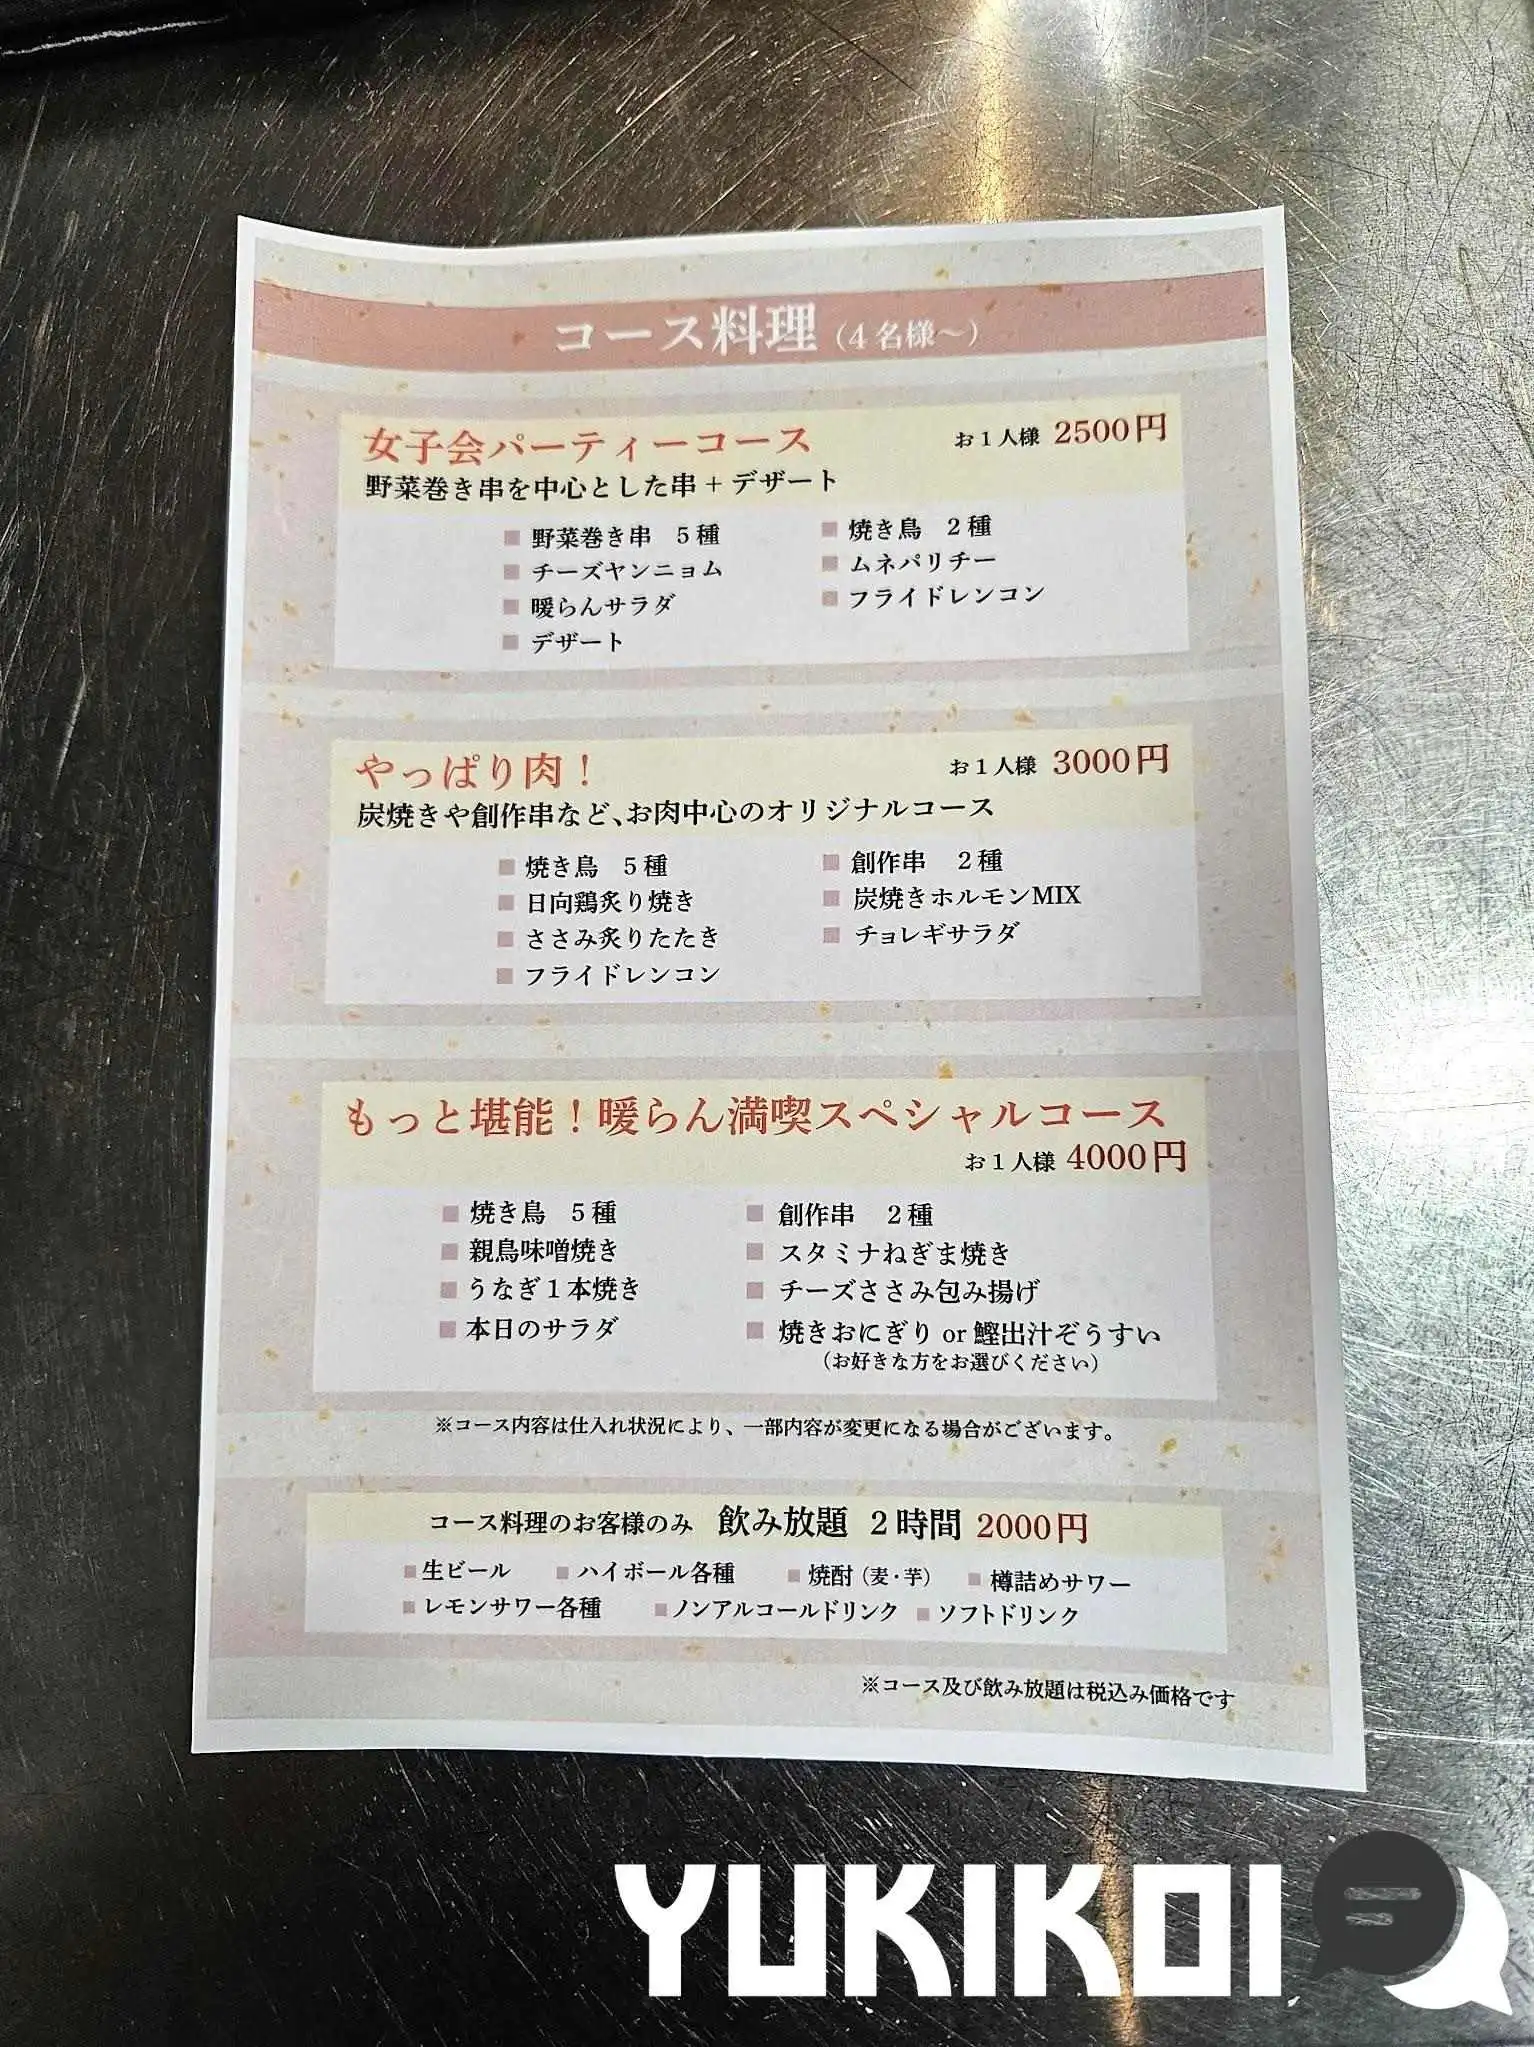 コース料理（4名様～）
女子会パーティーコース お1人様 2500円
野菜巻き串を中心とした串＋デザート
■ 野菜巻き串 5種 ■ 焼き鳥 2種
■ チーズヤンニョム ■ ムネパリチー
■ 暖らんサラダ ■ フライドレンコン
■ デザート
やっぱり肉！ お1人様 3000円
炭焼きや創作串など、お肉中心のオリジナルコース
■ 焼き鳥 5種 ■ 創作串 2種
■ 日向鶏炙り焼き ■ 炭焼きホルモンMIX
■ ささみ炙りたたき ■ チョレギサラダ
■ フライドレンコン
もっと堪能！暖らん満喫スペシャルコース
お1人様 4000円
■ 焼き鳥 5種 ■ 創作串 2種
■ 親鳥味噌焼き ■ スタミナねぎま焼き
■ うなぎ1本焼き ■ チーズささみ包み揚げ
■ 本日のサラダ ■ 焼きおにぎり or 鰹出汁ぞうすい
（お好きな方をお選びください）
※コース内容は仕入れ状況により、一部内容が変更になる場合がございます。
コース料理のお客様のみ 飲み放題 2時間 2000円
■生ビール ■ハイボール各種 ■焼酎（麦・芋） ■樽詰めサワー
■レモンサワー各種 ■ノンアルコールドリンク ■ソフトドリンク
※コース及び飲み放題は税込み価格です
YUKIKOI